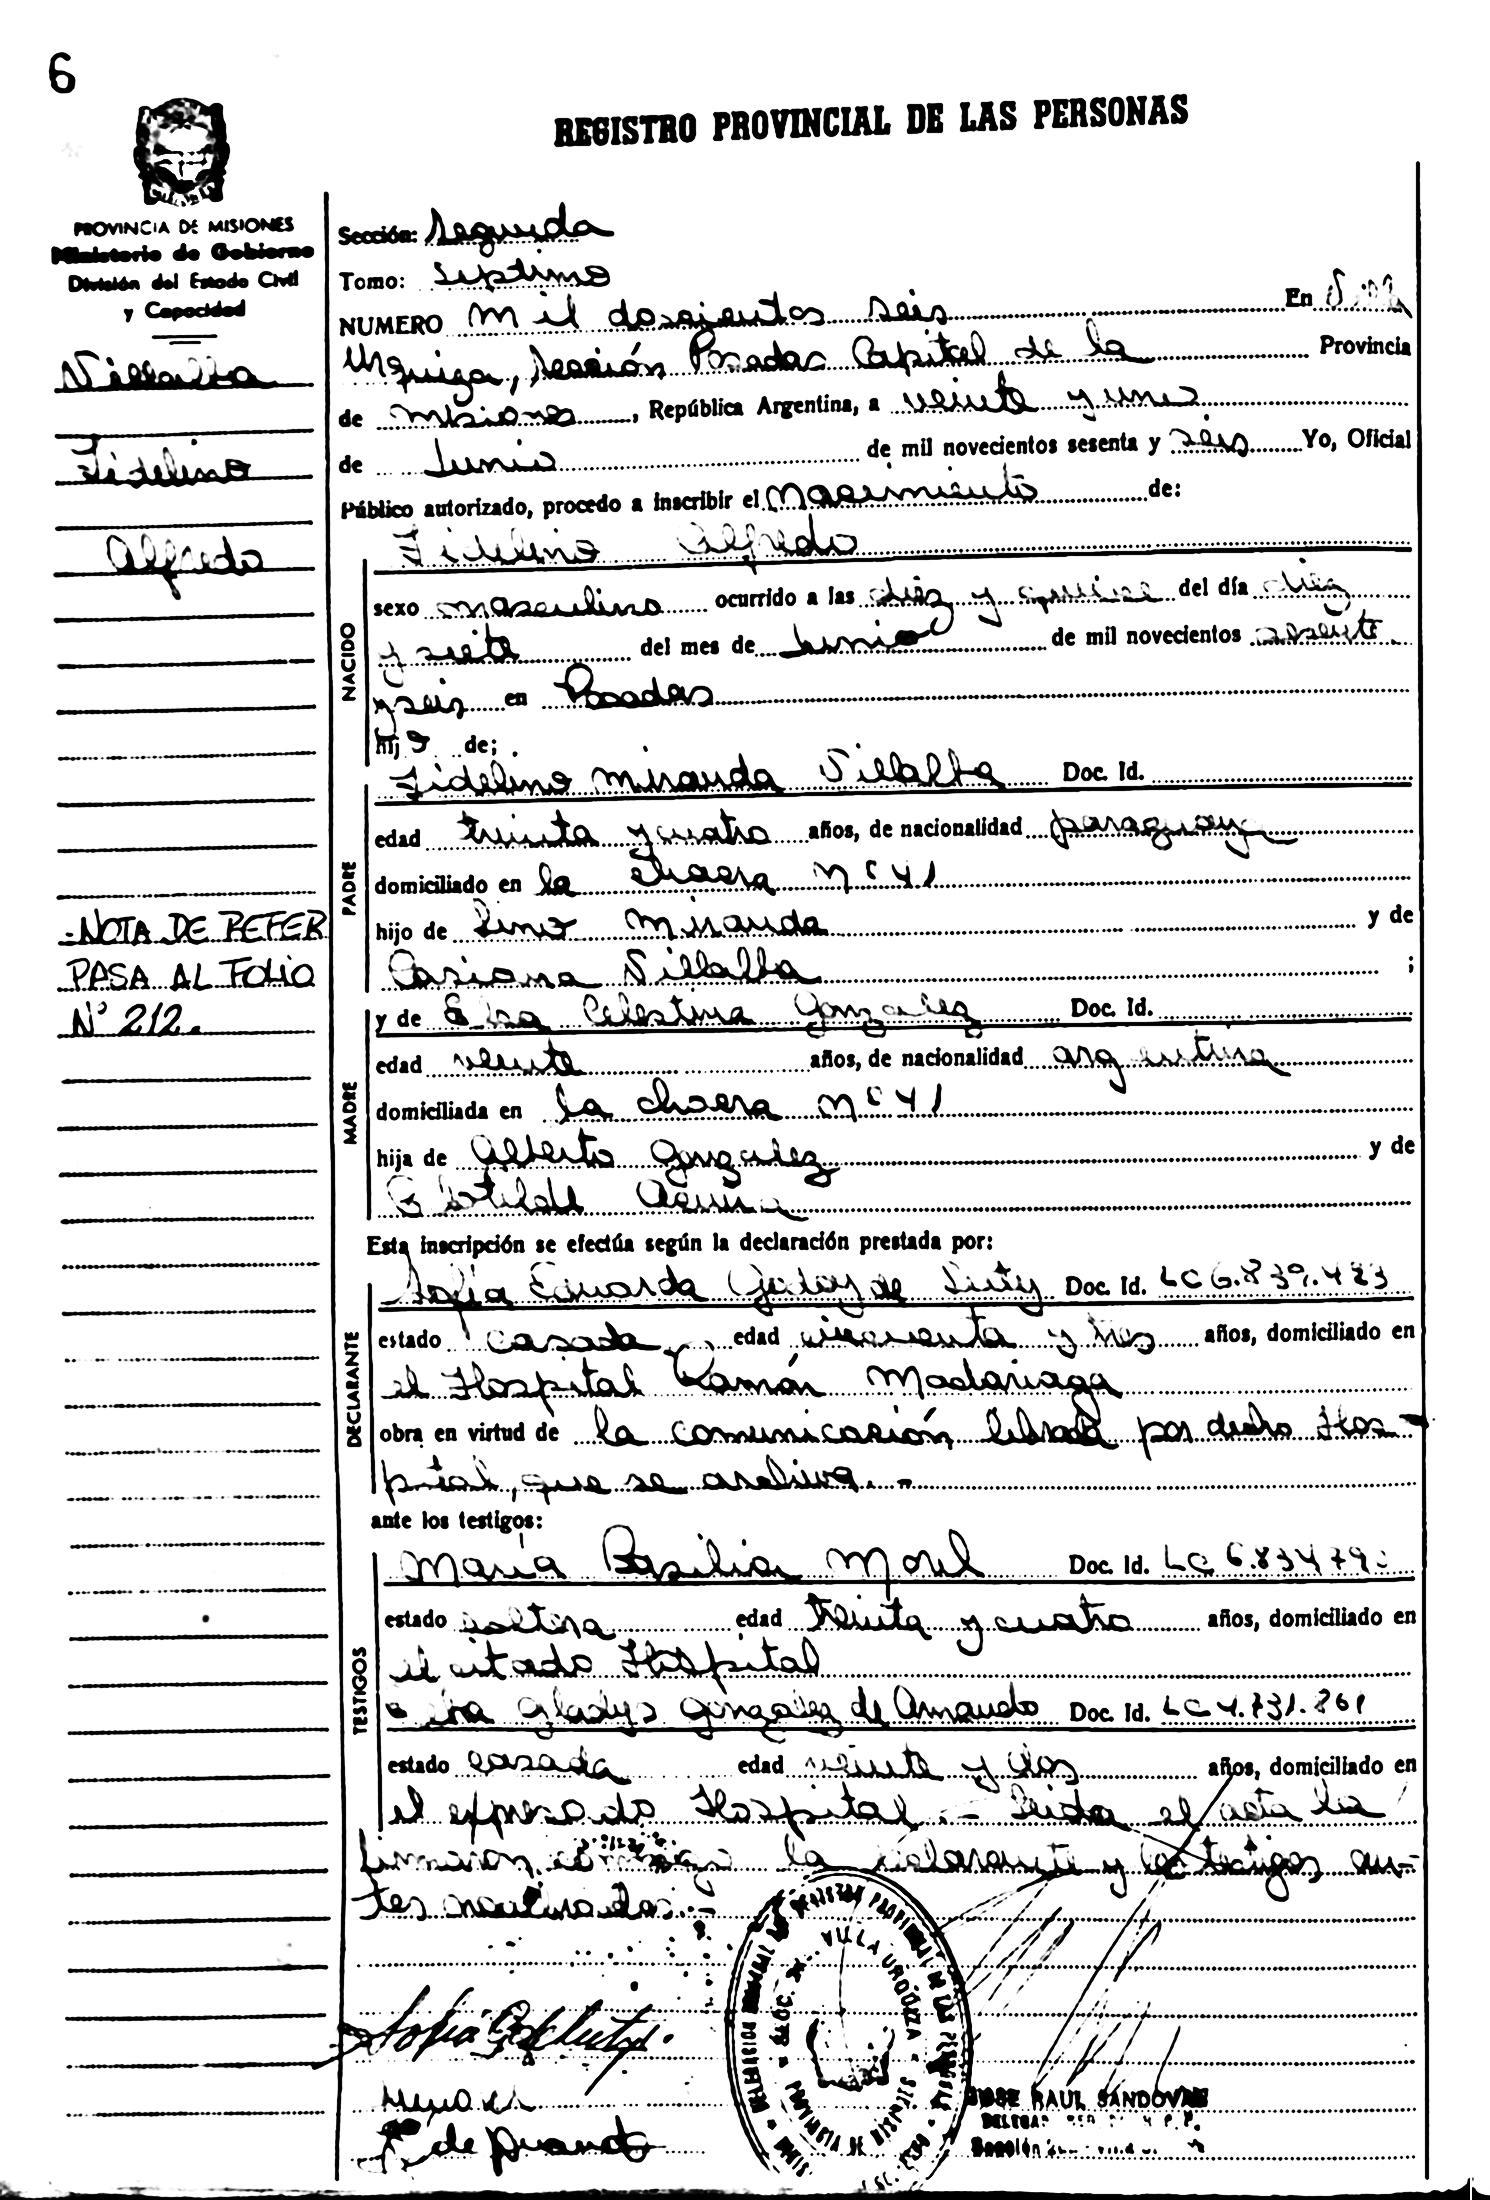 6
REGISTRO PROVINCIAL DE LAS PERSONAS
PROVINCIA DE MISIONES
Ministerio de Gobierno
División del Estado Civil
y Capacidad
Villalba
Fidelino
Alfredo
- NOTA DE REFER
PASA AL FOLIO
N° 212.
Sección: Segunda
Tomo: Septimo
NUMERO Mil doscientos seis En Villa
Urquiza, Sección Posadas Capital de la Provincia
de Misiones, República Argentina, a veinte y uno
de Junio de mil novecientos sesenta y seis Yo, Oficial
Público autorizado, procedo a inscribir el Nacimiento de:
Fidelino Alfredo
NACIDO
sexo masculino ocurrido a las diez y quince del día diez
y siete del mes de Junio de mil novecientos sesenta
y seis en Posadas
hijo de;
PADRE
Fidelino Miranda Villalba Doc. Id.
edad treinta y cuatro años, de nacionalidad paraguaya
domiciliado en la chacra N° 41
hijo de Lino Miranda y de
Villalba ;
MADRE
y de Elsa Celestina Gonzalez Doc. Id.
edad veinte años, de nacionalidad argentina
domiciliada en la chacra N° 41
hija de Alberto Gonzalez y de
Clotilde Acuña
Esta inscripción se efectúa según la declaración prestada por:
DECLARANTE
Sofía Eduarda Godoy de Doc. Id. LC 6.839.423
estado casada edad cincuenta y tres años, domiciliado en
el Hospital Ramón Madariaga
obra en virtud de la comunicación librada por dicho Hos-
pital, que se archiva. -
ante los testigos:
TESTIGOS
María Basilia Morel Doc. Id. LC 6.834.79
estado soltera edad treinta y cuatro años, domiciliado en
el citado Hospital
Gladys Gonzalez de Doc. Id. LC 4.731.861
estado casada edad veinte y dos años, domiciliado en
el expresado Hospital. - Leida el acta la
firmaron conmigo la declarante y los testigos an-
tes nombrados. -
REGISTRO PROVINCIAL DE LAS PERSONAS
VILLA URQUIZA
PROVINCIA DE MISIONES
JOSE RAUL SANDOVAL